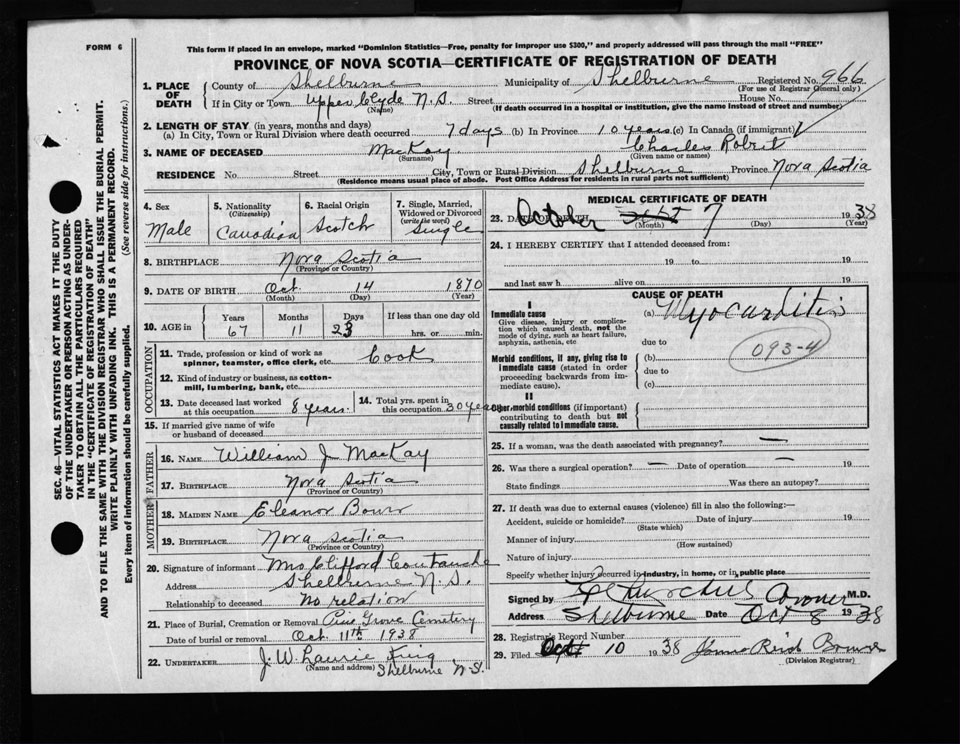 FORM 6
This form if placed in an envelope, marked "Dominion Statistics—Free, penalty for improper use $300," and properly addressed will pass through the mail "FREE"
PROVINCE OF NOVA SCOTIA—CERTIFICATE OF REGISTRATION OF DEATH
SEC. 46—VITAL STATISTICS ACT MAKES IT THE DUTY
OF THE UNDERTAKER OR PERSON ACTING AS UNDER-
TAKER TO OBTAIN ALL THE PARTICULARS REQUIRED
IN THE "CERTIFICATE OF REGISTRATION OF DEATH"
AND TO FILE THE SAME WITH THE DIVISION REGISTRAR WHO SHALL ISSUE THE BURIAL PERMIT.
WRITE PLAINLY WITH UNFADING INK. THIS IS A PERMANENT RECORD.
Every item of information should be carefully supplied. (See reverse side for instructions.)
1. PLACE OF DEATH County of Shelburne Municipality of Shelburne Registered No. 966
(For use of Registrar General only)
If in City or Town Upper Clyde N.S. Street House No.
(Name) (If death occurred in a hospital or institution, give the name instead of street and number)
2. LENGTH OF STAY (in years, months and days)
(a) In City, Town or Rural Division where death occurred 7 days (b) In Province 10 years (c) In Canada (if immigrant)
3. NAME OF DECEASED MacKay Charles Robert
(Surname) (Given name or names)
RESIDENCE No. Street City, Town or Rural Division Shelburne Province Nova Scotia
(Residence means usual place of abode. Post Office Address for residents in rural parts not sufficient)
4. Sex Male
5. Nationality (Citizenship) Canadian
6. Racial Origin Scotch
7. Single, Married, Widowed or Divorced (write the word) Single
8. BIRTHPLACE Nova Scotia
(Province or Country)
9. DATE OF BIRTH Oct. 14 1870
(Month) (Day) (Year)
10. AGE in Years Months Days If less than one day old
67 11 23 hrs. or min.
OCCUPATION
11. Trade, profession or kind of work as spinner, teamster, office clerk, etc. Cook
12. Kind of industry or business, as cotton-mill, lumbering, bank, etc.
13. Date deceased last worked at this occupation 8 years.
14. Total yrs. spent in this occupation 30 years
15. If married give name of wife or husband of deceased
FATHER
16. NAME William J MacKay
17. BIRTHPLACE Nova Scotia
(Province or Country)
MOTHER
18. MAIDEN NAME Eleanor
19. BIRTHPLACE Nova Scotia
(Province or Country)
20. Signature of informant Mrs Clifford
Address Shelburne N.S.
Relationship to deceased No relation
21. Place of Burial, Cremation or Removal Pine Grove Cemetery
Date of burial or removal Oct. 11th 1938
22. UNDERTAKER J. W. Laurie King
(Name and address) Shelburne N.S.
MEDICAL CERTIFICATE OF DEATH
23. DATE OF DEATH October 7 1938
(Month) (Day) (Year)
24. I HEREBY CERTIFY that I attended deceased from:
19 to 19
and last saw h alive on 19
CAUSE OF DEATH
I
Immediate cause (a) Myocarditis
Give disease, injury or complication which caused death, not the mode of dying, such as heart failure, asphyxia, asthenia, etc
due to
093-4
Morbid conditions, if any, giving rise to immediate cause (stated in order proceeding backwards from immediate cause). (b)
due to
(c)
II
Other morbid conditions (if important) contributing to death but not causally related to immediate cause.
25. If a woman, was the death associated with pregnancy? —
26. Was there a surgical operation? — Date of operation — 19
State findings Was there an autopsy?
27. If death was due to external causes (violence) fill in also the following:—
Accident, suicide or homicide? Date of injury 19
(State which)
Manner of injury
(How sustained)
Nature of injury
Specify whether injury occurred in industry, in home, or in public place
Signed by Coroner M.D.
Address Shelburne Date Oct 8 1938
28. Registrar's Record Number
29. Filed Oct 10 1938
(Division Registrar)